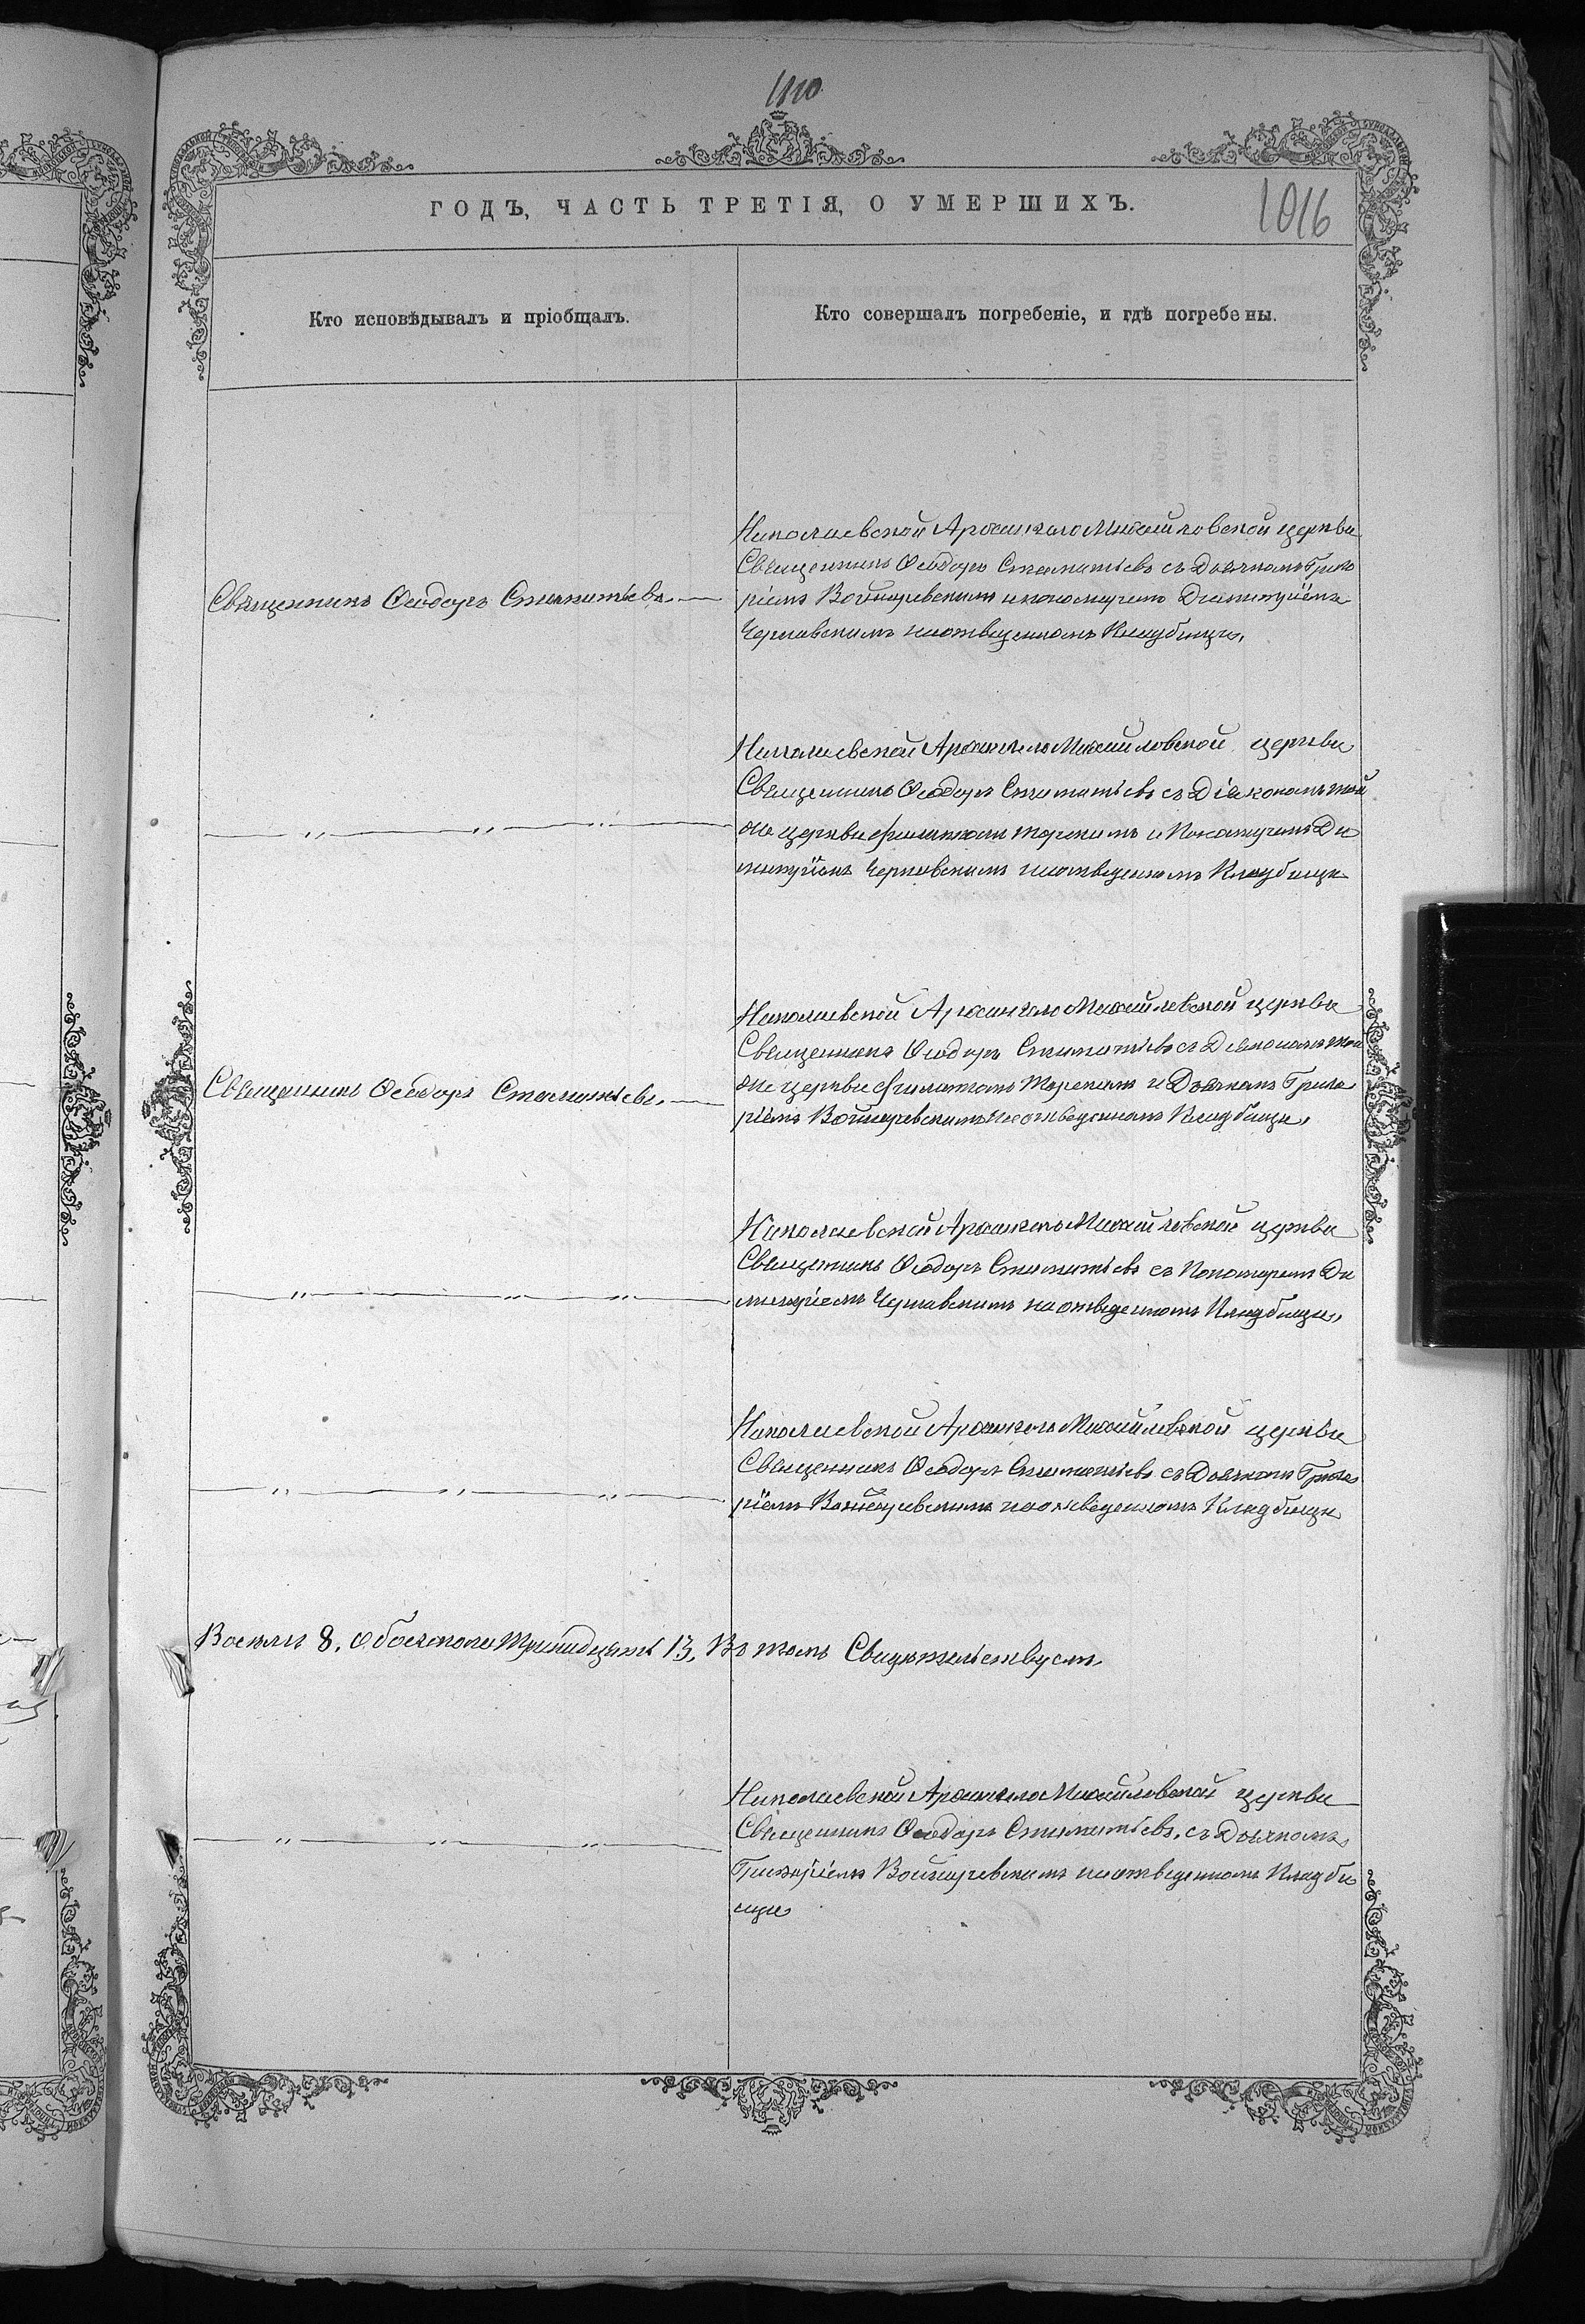 1016
ГОДЪ, ЧАСТЬ ТРЕТІЯ, О УМЕРШИХЪ.
Кто исповѣдывалъ и пріобщалъ.
Кто совершалъ погребеніе, и гдѣ погребены.
Священникъ Ѳеодоръ Стаматьевъ
Николаевской Архангело Михайловской церкви
Священникъ Ѳеодоръ Стаматіевъ съ Дьячкомъ Григо
ріемъ Войцеревскимъ и пономаремъ Димитріемъ
Чернявскимъ на отведенномъ Кладбищи.
Николаевской Архангело Михайловской церкви
Священникъ Ѳеодоръ Стаматіевъ съ Діякономъ той
же церкви Филиппомъ и Пономаремъ Ди
митріемъ Чернявскимъ на отведенномъ Кладбищи
Священникъ Ѳеодоръ Стаматіевъ
Николаевской Архангело Михайловской церкви
Священникъ Ѳеодоръ Стаматіевъ съ Діякономъ той
же церкви Филиппомъ и Дьячкомъ Григо
ріемъ Войцеревскимъ на отведенномъ Кладбищи,
Николаевской Архангело Михайловской церкви
Священникъ Ѳеодоръ Стаматіевъ съ Пономаремъ Ди
митріемъ Чернявскимъ на отведенномъ Кладбищи,
Николаевской Архангело Михайловской церкви
Священникъ Ѳеодоръ Стаматіевъ съ Дьячкомъ Григо
ріемъ Войцеревскимъ на отведенномъ Кладбищи
Восемь 8. Обоего пола Тринадцать 13. Въ томъ Свидѣтельствуемъ
Николаевской Архангело Михайловской церкви
Священникъ Ѳеодоръ Стаматіевъ, съ Дьячкомъ
Григоріемъ Войцеревскимъ на отведенномъ Кладби
щи